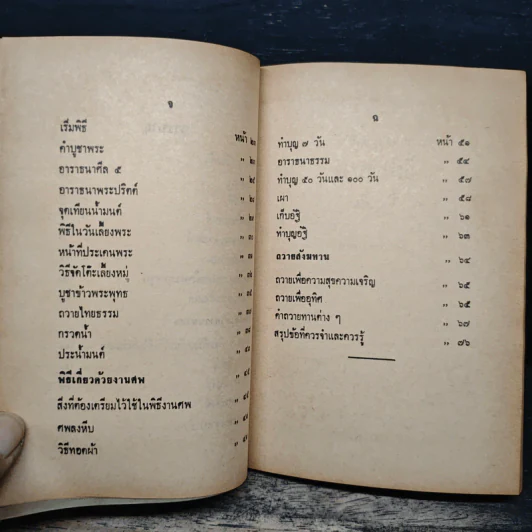 เริ่มพิธี หน้า
คำบูชาพระ "
อาราธนาศีล ๕ "
อาราธนาพระปริตต์ "
จุดเทียนน้ำมนต์ "
พิธีในวันเลี้ยงพระ "
หน้าที่ประเคนพระ "
วิธีจัดโต๊ะเลี้ยงหมู่ "
บูชาข้าวพระพุทธ "
ถวายไทยธรรม "
กรวดน้ำ "
ประน้ำมนต์ "
พิธีเกี่ยวด้วยงานศพ "
สิ่งที่ต้องเตรียมไว้ใช้ในพิธีงานศพ "
ศพลงหีบ "
วิธีทอดผ้า "
ฉ
ทำบุญ ๗ วัน หน้า ๕๑
อาราธนาธรรม " ๕๔
ทำบุญ ๕๐ วันและ ๑๐๐ วัน " ๕๗
เผา " ๕๘
เก็บอัฐิ " ๖๑
ทำบุญอัฐิ " ๖๓
ถวายสังฆทาน " ๖๔
ถวายเพื่อความสุขความเจริญ " ๖๕
ถวายเพื่ออุทิศ " ๖๕
คำถวายทานต่าง ๆ " ๖๗
สรุปข้อที่ควรจำและควรรู้ " ๗๖